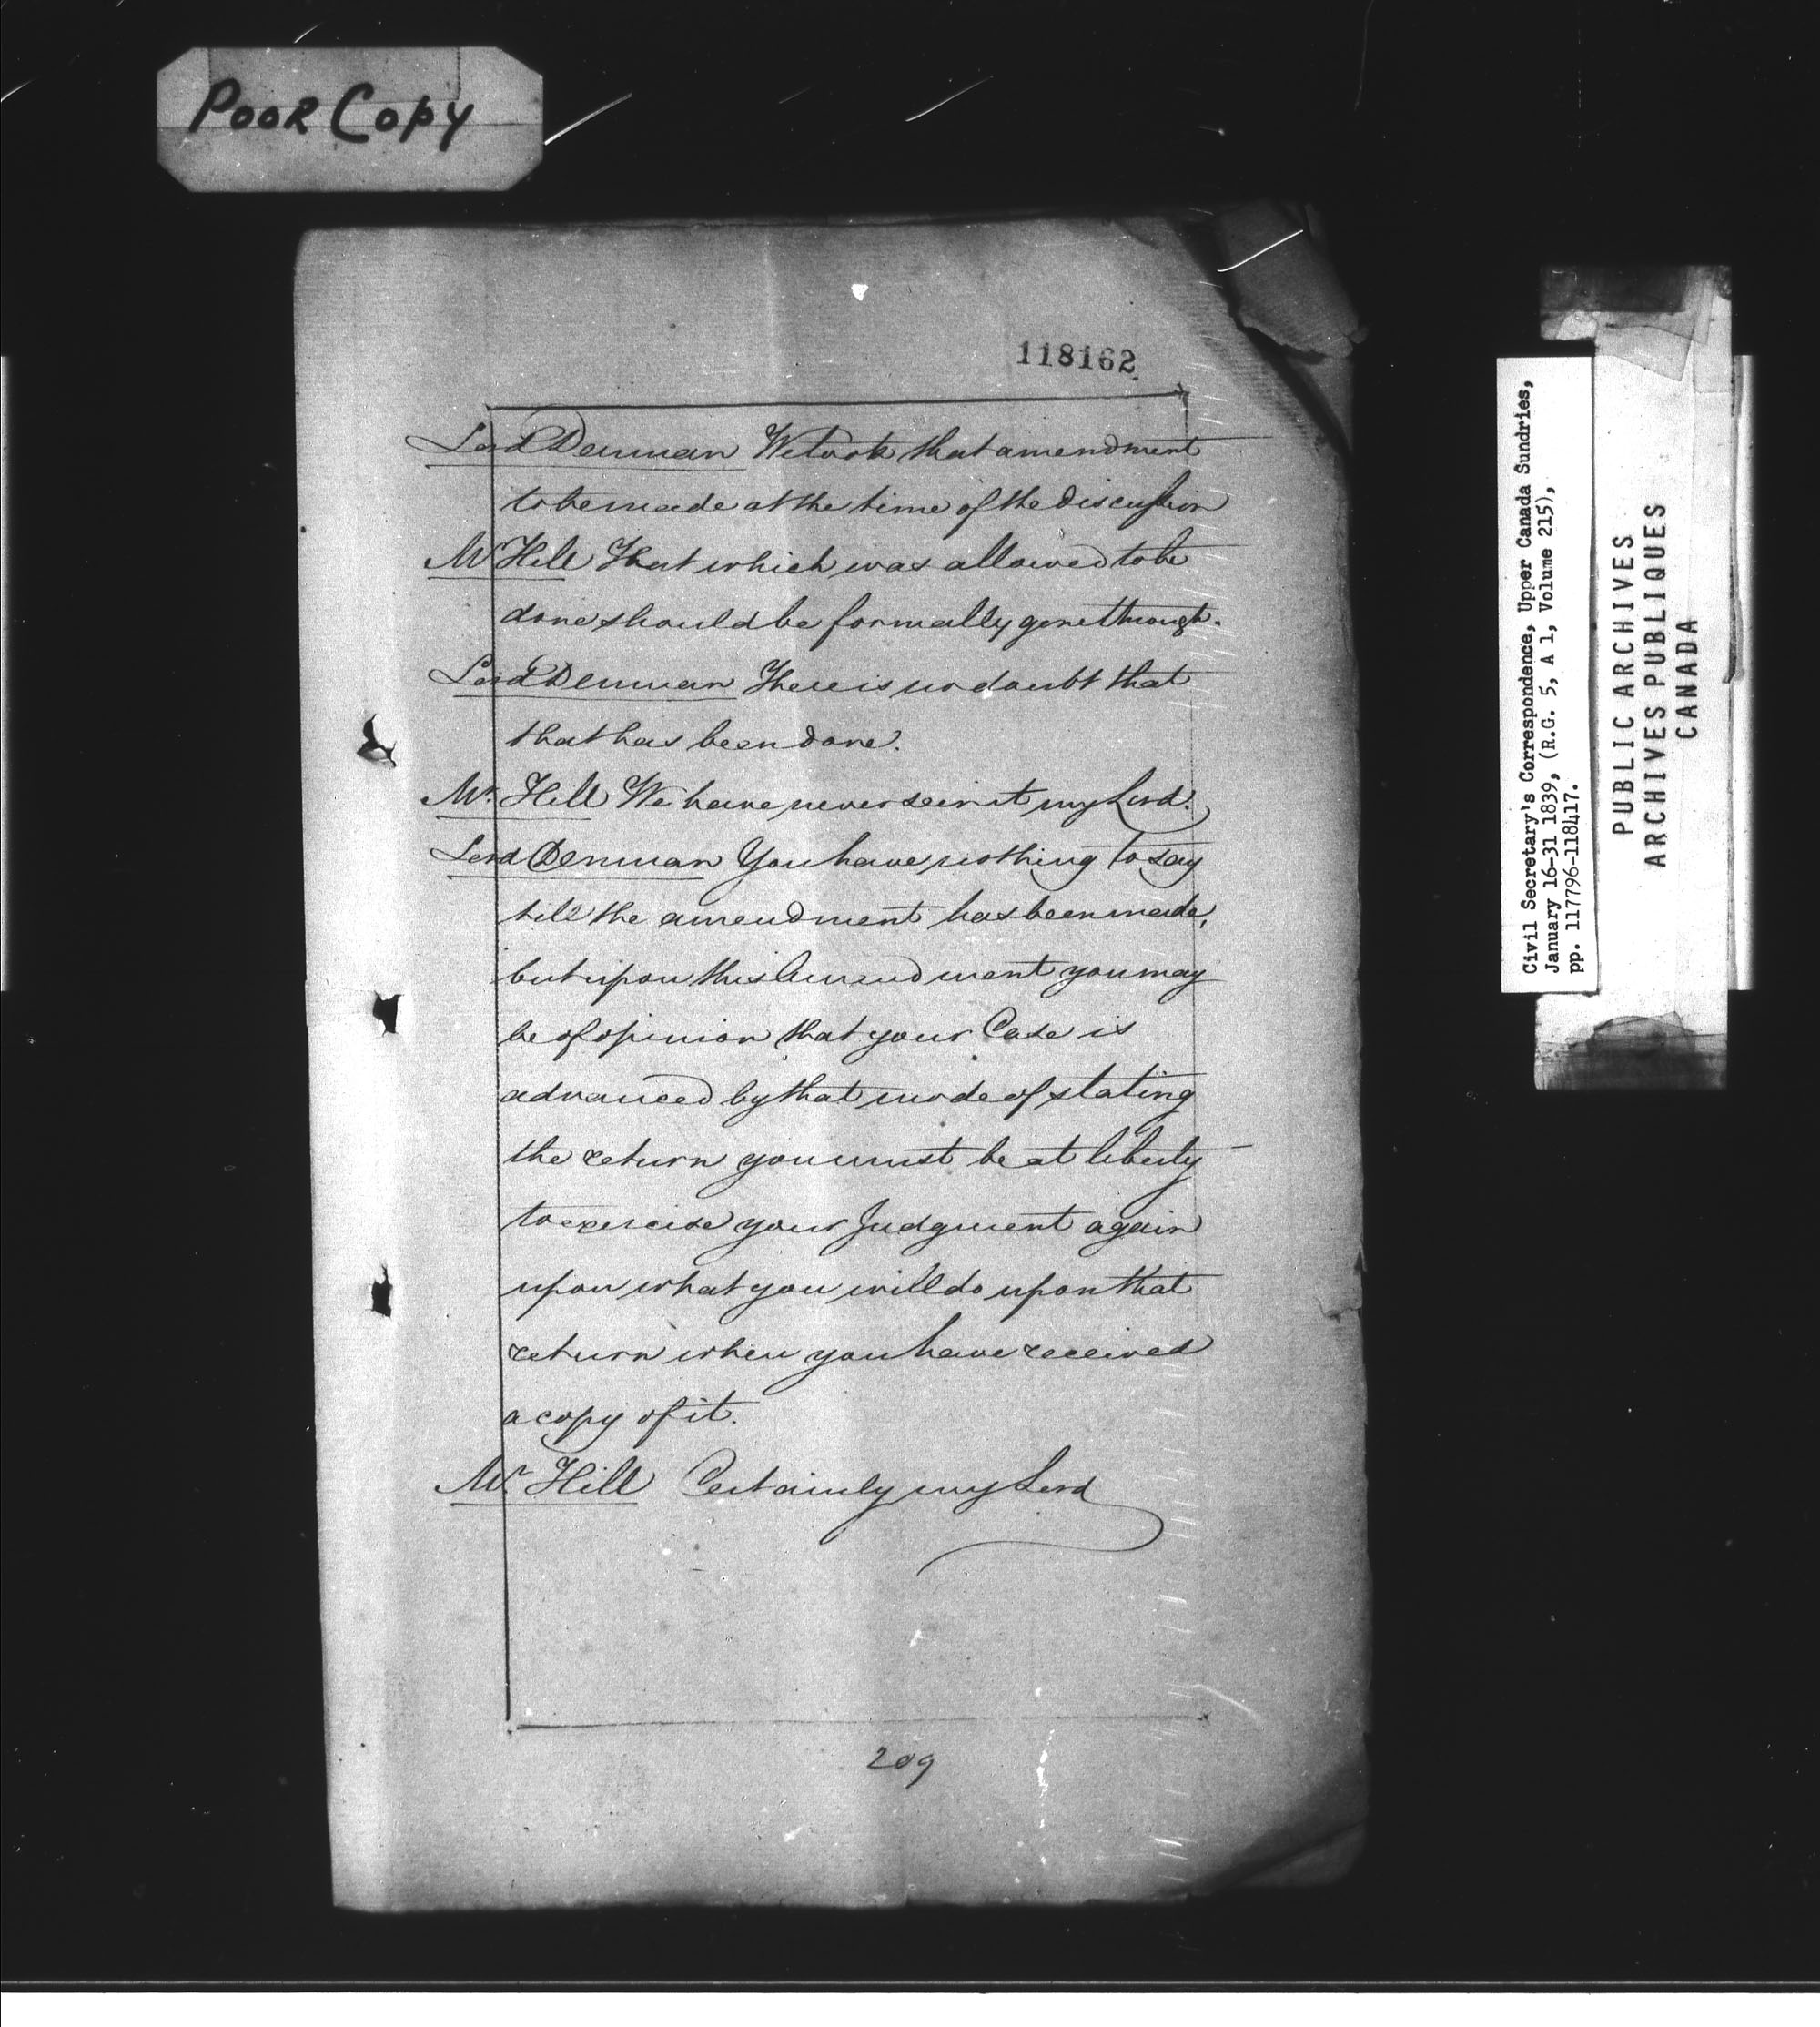 POOR COPY
118162
Lord Denman We took that amendment
to be made at the time of the discussion
Mr Hill That which was allowed to be
done should be formally gone through.
Lord Denman There is no doubt that
that has been done.
Mr. Hill We have never seen it my Lord.
Lord Denman You have nothing to say
till the amendment has been made,
but upon this Amendment you may
be of opinion that your Case is
advanced by that mode of stating
the return you must be at liberty
to exercise your Judgment again
upon what you will do upon that
return when you have received
a copy of it.
Mr. Hill Certainly my Lord
209
Civil Secretary's Correspondence, Upper Canada Sundries,
January 16-31 1839, (R.G. 5, A 1, Volume 215),
pp. 117796-118417.
PUBLIC ARCHIVES
ARCHIVES PUBLIQUES
CANADA